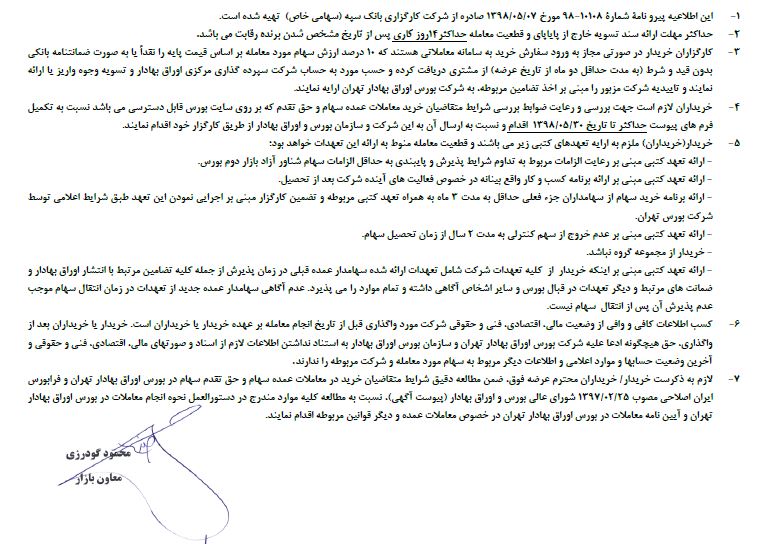 ۱- این اطلاعیه پیرو نامهٔ شمارهٔ ۱۰۱۰۸-۹۸ مورخ ۱۳۹۸/۰۵/۰۷ صادره از شرکت کارگزاری بانک سپه (سهامی خاص) تهیه شده است.
۲- حداکثر مهلت ارائه سند تسویه خارج از پایاپای و قطعیت معامله حداکثر۱۴روز کاری پس از تاریخ مشخص شدن برنده رقابت می باشد.
۳- کارگزاران خریدار در صورتی مجاز به ورود سفارش خرید به سامانه معاملاتی هستند که ۱۰ درصد ارزش سهام مورد معامله بر اساس قیمت پایه را نقداً یا به صورت ضمانتنامه بانکی
بدون قید و شرط (به مدت حداقل دو ماه از تاریخ عرضه) از مشتری دریافت کرده و حسب مورد به حساب شرکت سپرده گذاری مرکزی اوراق بهادار و تسویه وجوه واریز یا ارائه
نمایند و تاییدیه شرکت مزبور را مبنی بر اخذ تضامین مربوطه، به شرکت بورس اوراق بهادار تهران ارایه نمایند.
۴- خریداران لازم است جهت بررسی و رعایت ضوابط بررسی شرایط متقاضیان خرید معاملات عمده سهام و حق تقدم که بر روی سایت بورس قابل دسترسی می باشد نسبت به تکمیل
فرم های پیوست حداکثر تا تاریخ ۱۳۹۸/۰۵/۳۰ اقدام و نسبت به ارسال آن به این شرکت و سازمان بورس و اوراق بهادار از طریق کارگزار خود اقدام نمایند.
۵- خریدار(خریداران) ملزم به ارایه تعهدهای کتبی زیر می باشند و قطعیت معامله منوط به ارائه این تعهدات خواهد بود:
- ارائه تعهد کتبی مبنی بر رعایت الزامات مربوط به تداوم شرایط پذیرش و پایبندی به حداقل الزامات سهام شناور آزاد بازار دوم بورس.
- ارائه تعهد کتبی مبنی بر ارائه برنامه کسب و کار واقع بینانه در خصوص فعالیت های آینده شرکت بعد از تحصیل.
- ارائه برنامه خرید سهام از سهامداران جزء فعلی حداقل به مدت ۳ ماه به همراه تعهد کتبی مربوطه و تضمین کارگزار مبنی بر اجرایی نمودن این تعهد طبق شرایط اعلامی توسط
شرکت بورس تهران.
- ارائه تعهد کتبی مبنی بر عدم خروج از سهم کنترلی به مدت ۲ سال از زمان تحصیل سهام.
- خریدار از مجموعه گروه نباشد.
- ارائه تعهد کتبی مبنی بر اینکه خریدار از کلیه تعهدات شرکت شامل تعهدات ارائه شده سهامدار عمده قبلی در زمان پذیرش از جمله کلیه تضامین مرتبط با انتشار اوراق بهادار و
ضمانت های مرتبط و دیگر تعهدات در قبال بورس و سایر اشخاص آگاهی داشته و تمام موارد را می پذیرد. عدم آگاهی سهامدار عمده جدید از تعهدات در زمان انتقال سهام موجب
عدم پذیرش آن پس از انتقال سهام نیست.
۶- کسب اطلاعات کافی و وافی از وضعیت مالی، اقتصادی، فنی و حقوقی شرکت مورد واگذاری قبل از تاریخ انجام معامله بر عهده خریدار یا خریداران است. خریدار یا خریداران بعد از
واگذاری، حق هیچگونه ادعا علیه شرکت بورس اوراق بهادار تهران و سازمان بورس اوراق بهادار به استناد نداشتن اطلاعات لازم از اسناد و صورتهای مالی، اقتصادی، فنی و حقوقی و
آخرین وضعیت حسابها و موارد اعلامی و اطلاعات دیگر مربوط به سهام مورد معامله و شرکت مربوطه را ندارند.
۷- لازم به ذکرست خریدار/ خریداران محترم عرضه فوق، ضمن مطالعه دقیق شرایط متقاضیان خرید در معاملات عمده سهام و حق تقدم سهام در بورس اوراق بهادار تهران و فرابورس
ایران اصلاحی مصوب ۱۳۹۷/۰۲/۲۵ شورای عالی بورس و اوراق بهادار (پیوست آگهی)، نسبت به مطالعه کلیه موارد مندرج در دستورالعمل نحوه انجام معاملات در بورس اوراق بهادار
تهران و آیین نامه معاملات در بورس اوراق بهادار تهران در خصوص معاملات عمده و دیگر قوانین مربوطه اقدام نمایند.
محمود گودرزی
معاون بازار